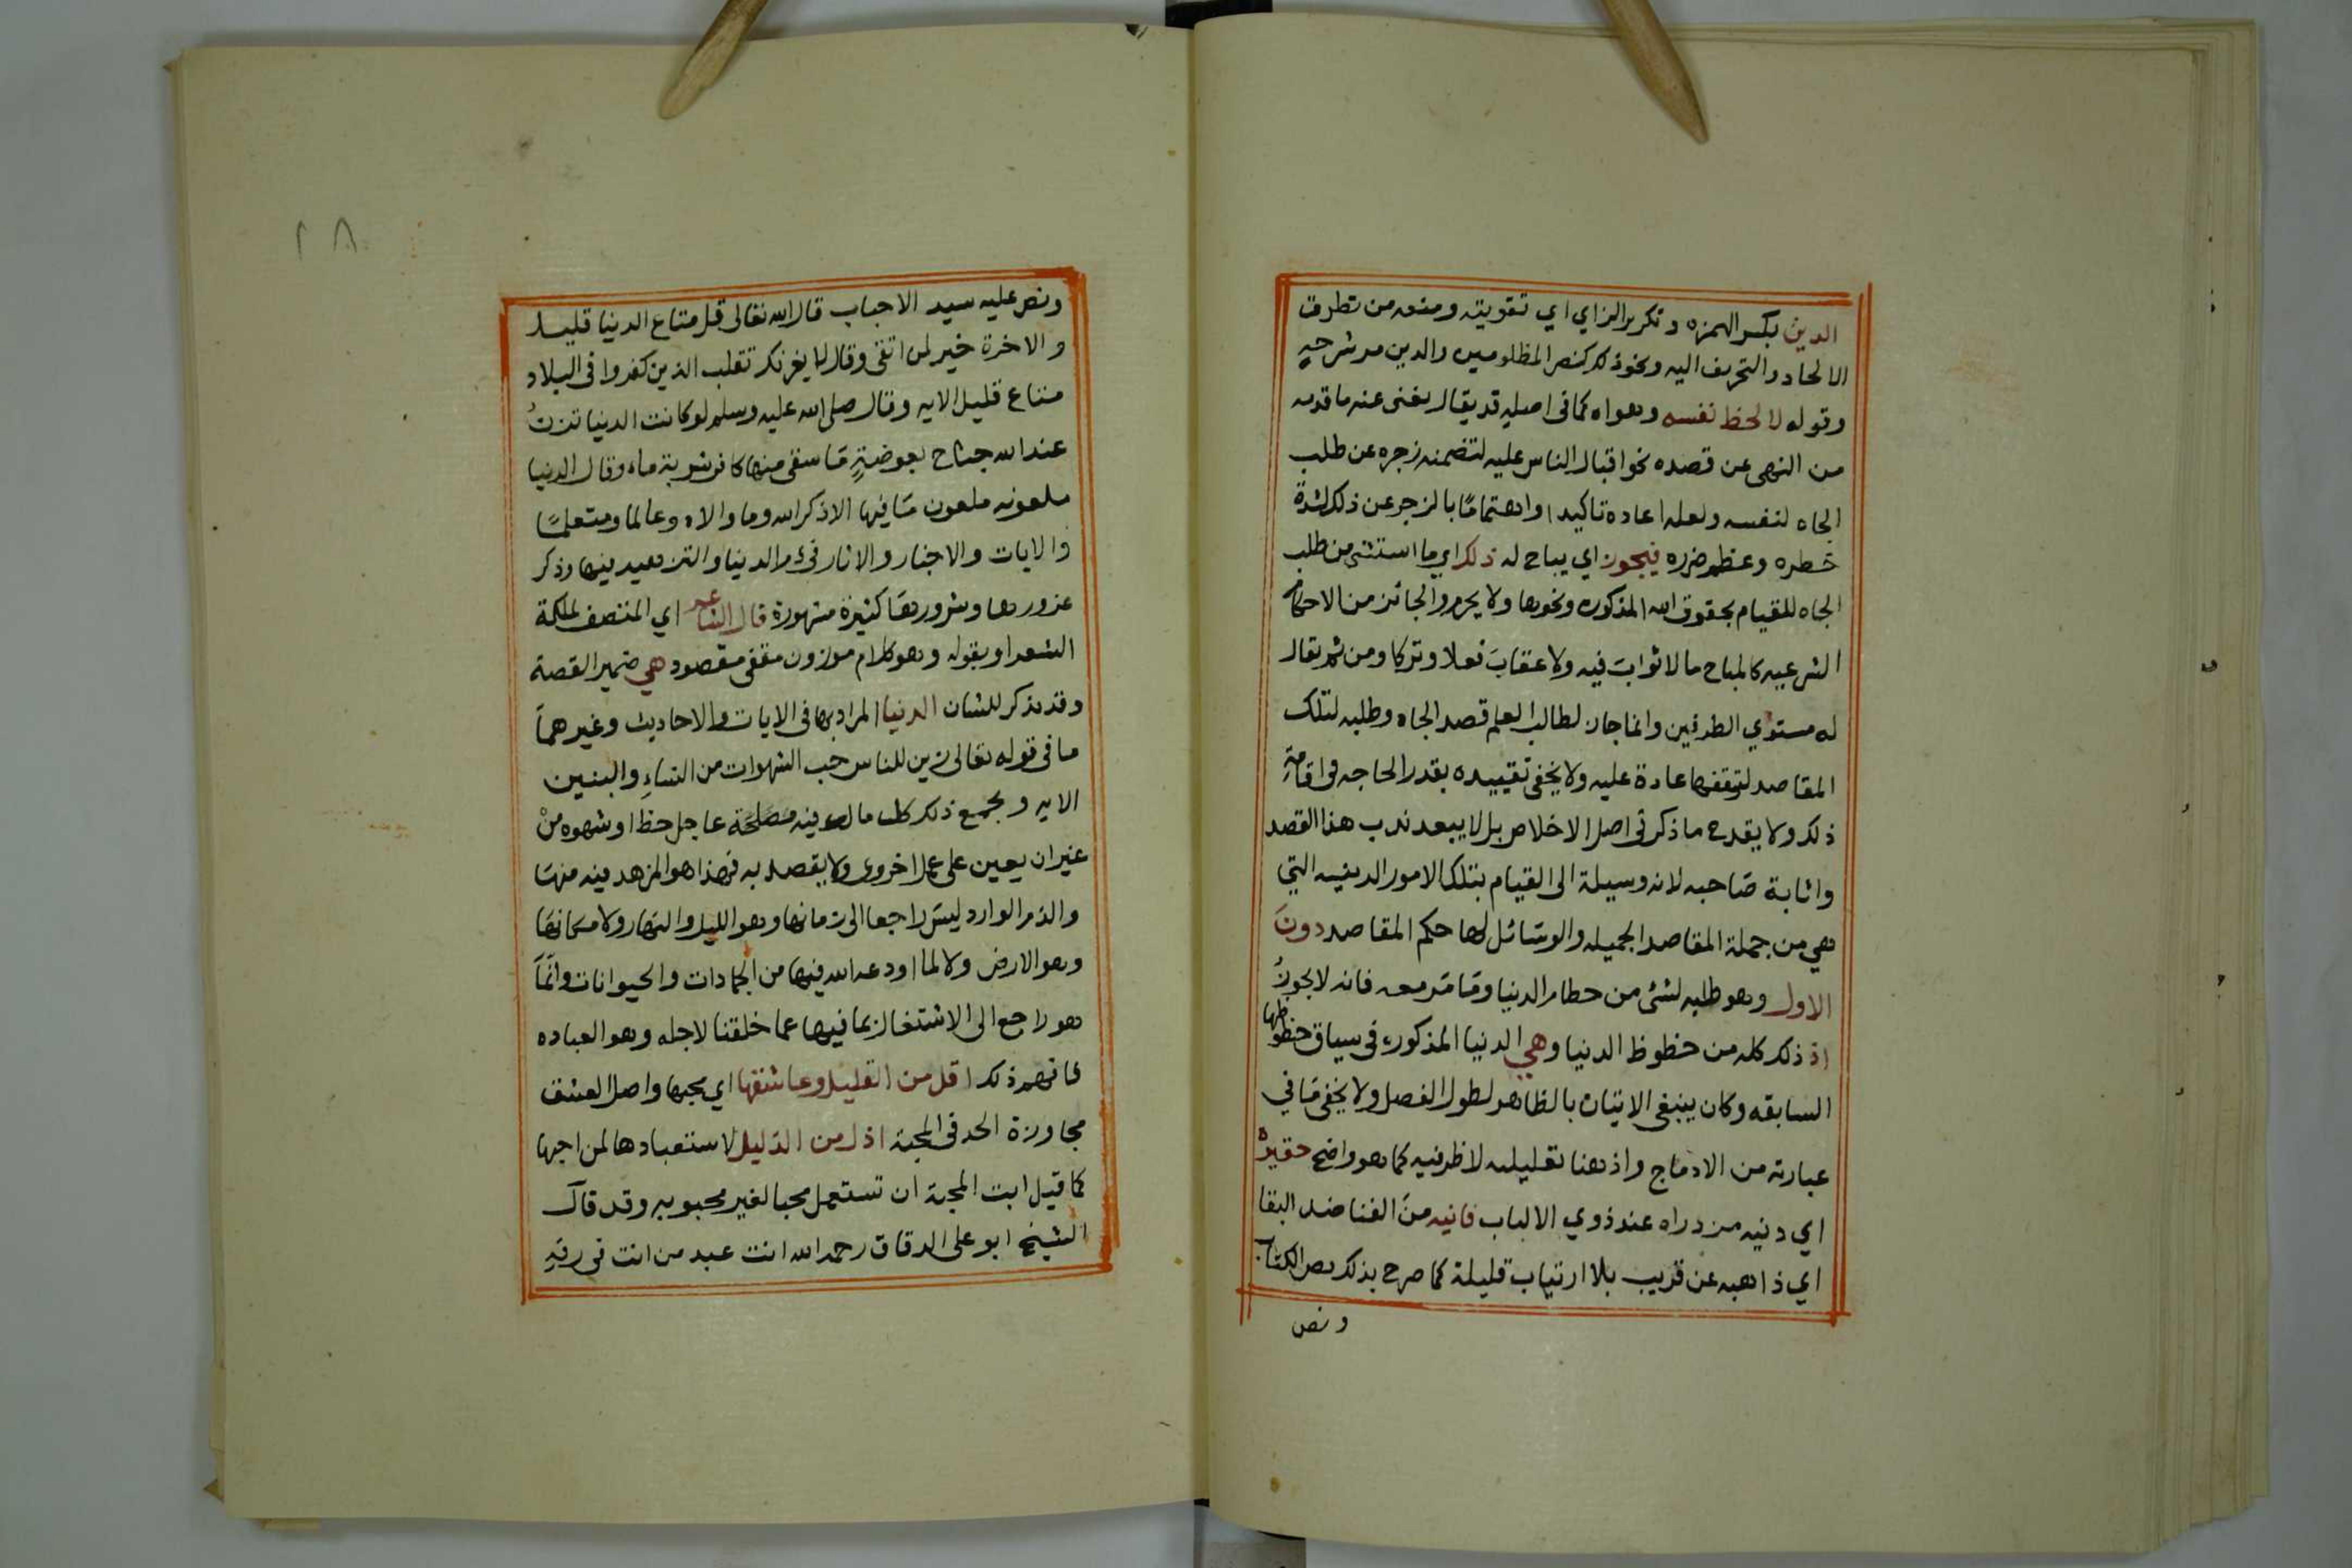 الدين بكسر الهمزه وتكرير الزاي اي تقويته ومنعه من تطرق
الالحاد والتحريف اليه ونحو ذلك كنصر المظلومين والدين مر شرحه
وقوله لا لحظ نفسه وهواه كما في اصله قد يقال يغنى عنه ما قدمه
من النهى عن قصده نحو اقبال الناس عليه لتضمنه زجره عن طلب
الجاه لنفسه ولعله اعاده تاكيدا واهتمامًا بالزجر عن ذلك لشدة
خطره وعظم ضرره فيجوز اي يباح له ذلك اي ما استثنى من طلب
الجاه للقيام بحقوق الله المذكوره ونحوها ولا يحرم والجائز من الاحكام
الشرعيه كالمباح ما لا ثواب فيه ولا عقاب فعلا وتركا ومن ثم يقال
له مستوي الطرفين وانما جاز لطالب العلم قصد الجاه وطلبه لتلك
المقاصد لتوقفها عادة عليه ولا يخفى تقييده بقدر الحاجه في اقامة
ذلك ولا يقدح ما ذكر في اصل الاخلاص بل لا يبعد ندب هذا القصد
واثابة صاحبه لانه وسيلة الى القيام بتلك الامور الدينيه التي
هي من جملة المقاصد الجميله والوسائل لها حكم المقاصد دون
الاول وهو طلبه لشئ من حطام الدنيا وما مر معه فانه لا يجوز
اذ ذلك كله من حظوظ الدنيا وهي الدنيا المذكوره في سياق حظوظها
السابقه وكان ينبغى الاتيان بالظاهر لطول الفصل ولا يخفى ما في
عبارته من الادماج واذ هنا تعليليه لا ظرفيه كما هو واضح حقيرة
اي دنيه مزدراه عند ذوي الالباب فانيه من الفنا ضد البقا
اي ذاهبه عن قريب بلا ارتياب قليلة كما صرح بذلك نص الكتاب
ونص
٢٨
ونص عليه سيد الاحباب قال الله تعالى قل متاع الدنيا قليل
والاخرة خير لمن اتقى وقال لا يغرنك تقلب الذين كفروا في البلاد
متاع قليل الايه وقال صلى الله عليه وسلم لو كانت الدنيا تزن
عند الله جناح بعوضةٍ ما سقى منها كافر شربة ماء وقال الدنيا
ملعونه ملعون ما فيها الا ذكر الله وما والاه وعالما ومتعلما
والايات والاخبار والاثار في ذم الدنيا والتزهيد فيها وذكر
غرورها وشرورها كثيرة مشهورة قال الشاعر اي المتصف بملكة
الشعر او بقوله وهو كلام موزون مقفى مقصود هي ضمير القصة
وقد يذكر للشان الدنيا المراد بها في الايات والاحاديث وغيرهما
ما في قوله تعالى زين للناس حب الشهوات من النساء والبنين
الايه ويجمع ذلك كل ما له فيه مصلحة عاجل حظ او شهوه من
غير ان يعين على عمل اخروى ولا يقصد به فهذا هو المزهد فيه منها
والذم الوارد ليس راجعا الى زمانها وهو الليل والنهار ولا مكانها
وهو الارض ولا لما اودعه الله فيها من الجمادات والحيوانات وانما
هو راجع الى الاشتغال بما فيها عما خلقنا لاجله وهو العباده
فافهم ذلك اقل من القليل وعاشقها اي محبها واصل العشق
مجاوزة الحد في المحبة اذل من الذليل لاستعبادها لمن احبها
كما قيل ابت المحبة ان تستعمل محبا لغير محبوبه وقد قال
الشيخ ابو على الدقاق رحمه الله انت عبد من انت في رقه